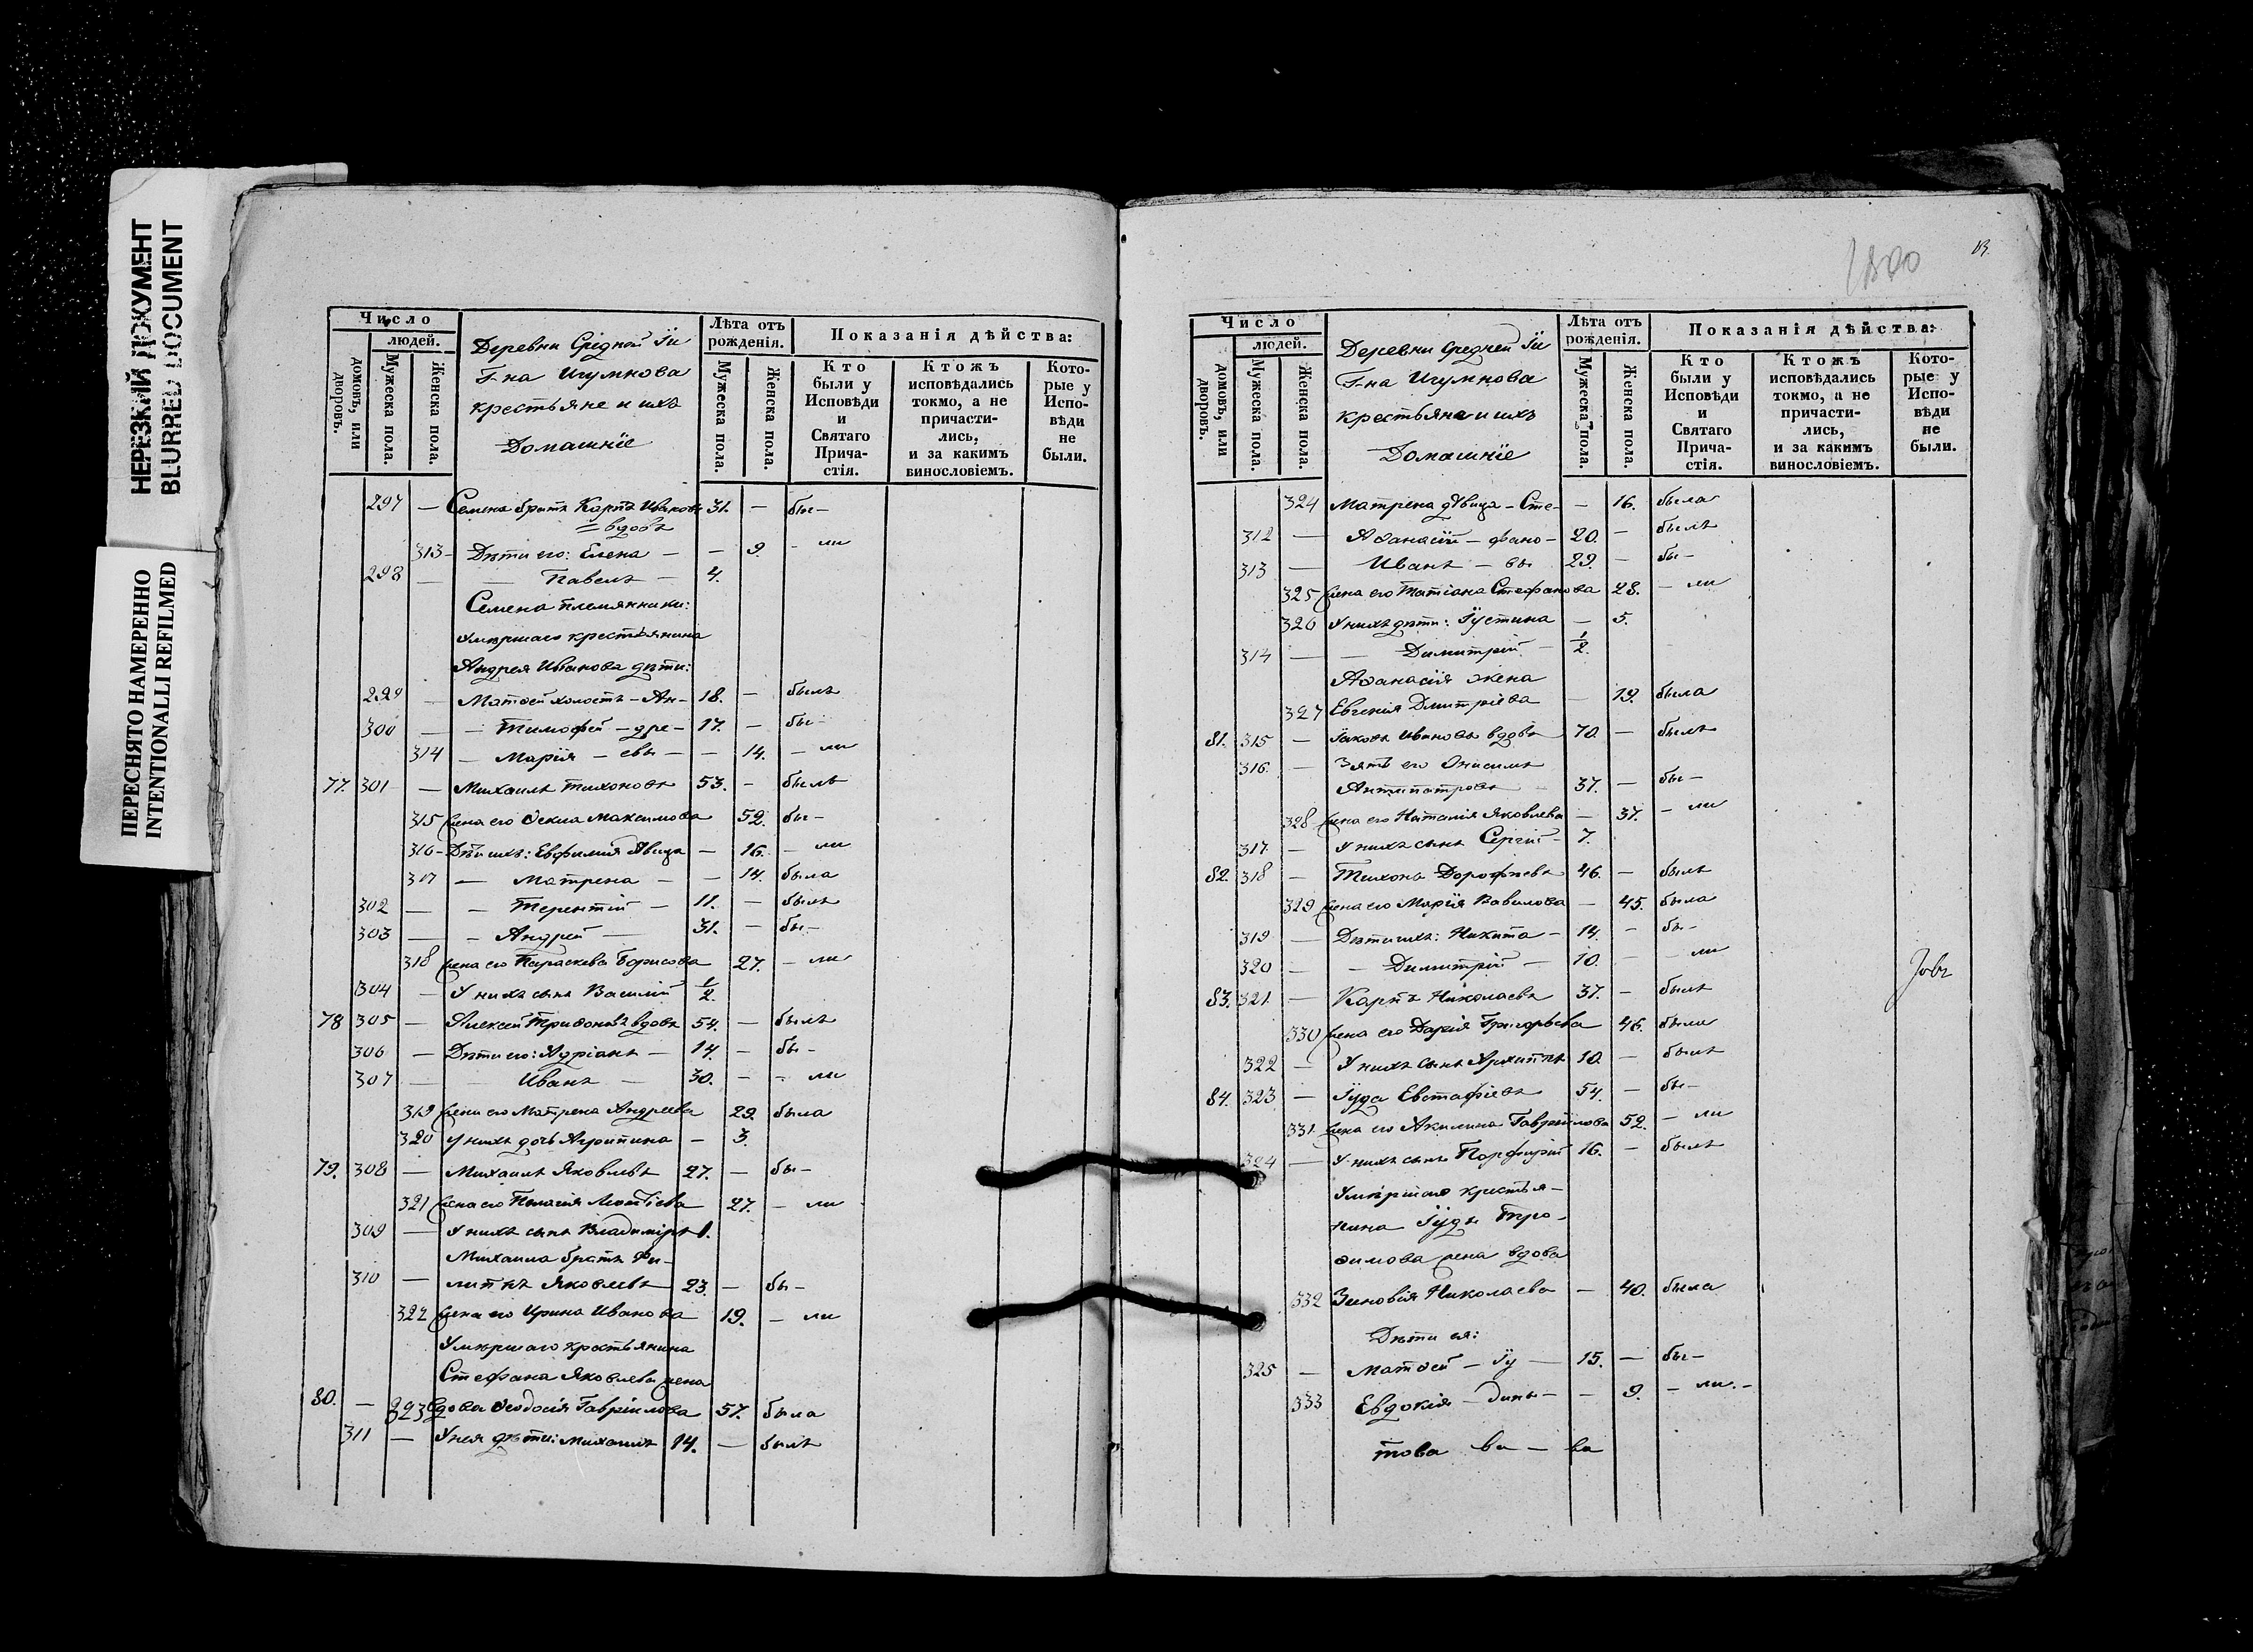 НЕРЕЗКИЙ ДОКУМЕНТ
BLURRED DOCUMENT
ПЕРЕСНЯТО НАМЕРЕННО
INTENTIONALLI REFILMED
Число
людей.
домовъ, или дворовъ.
Мужеска пола.
Женска пола.
Деревни Средней
Г-на Игумнова
крестьяне и ихъ
Домашніе
Лѣта отъ рожденія.
Мужеска пола.
Женска пола.
Показанія дѣйства:
Кто были у Исповѣди и Святаго Причастія.
Ктожъ исповѣдались токмо, а не причастились, и за какимъ винословіемъ.
Которые у Исповѣди не были.
297 — Семена братъ Карпъ Ивановъ 31. — бы-
вдовъ
313 - Дѣти его: Елена — — 9. - ли
298 — — Павелъ — 4.
Семена племянники:
Умершаго крестьянина
Андрея Иванова дѣти:
299 — Матвей холостъ - Ан- 18. — былъ
300 — - Тимофей - дре- 17. — бы-
314 — Марія - евы — — 14. - ли
77. 301 — Михаилъ Тихоновъ 53. - былъ
315 жена его Ѳекла Максимова 52. бы-
316 - Дѣти ихъ: Евфимія дѣвица — 16. - ли
317 — Матрена — — 14. была
302 — - Терентій — 11. — былъ
303 — - Андрей — 31. — бы-
318 жена его Параскева Борисова 27. - ли
304 — У нихъ сынъ Василій 1/2.
78 305 — Алексей Трифоновъ вдовъ 54. — былъ
306 — Дѣти его: Адріанъ — 14. — бы-
307 — Иванъ — 30. — - ли
319 жена его Матрена Андреева 29. была
320 у нихъ дочь Агрипина — 3.
79. 308 — Михаилъ Яковлевъ 27. — бы-
321 жена его Пелагія Леонтіева 27. - ли
309 — У нихъ сынъ Владиміръ 1.
Михаила братъ Фи-
310 — липпъ Яковлевъ 23. — бы-
322 жена его Ирина Иванова 19. - ли
Умершаго крестьянина
Стефана Яковлева жена
80. — 323 вдова Ѳеодосія Гавріилова 57. была
311 — У нея дѣти: Михаилъ 14. — былъ
13.
Число
людей.
домовъ, или дворовъ.
Мужеска пола.
Женска пола.
Деревни Средней
Г-на Игумнова
крестьяне и ихъ
Домашніе
Лѣта отъ рожденія.
Мужеска пола.
Женска пола.
Показанія дѣйства:
Кто были у Исповѣди и Святаго Причастія.
Ктожъ исповѣдались токмо, а не причастились, и за какимъ винословіемъ.
Которые у Исповѣди не были.
324 Матрена дѣвица - Сте- — 16. была
312 — Аѳанасій - фано- 20. — былъ
313 — Иванъ - вы 29. — бы-
325 жена его Татіана Стефанова 28. - ли
326 У нихъ дѣти: Іустина — 5.
314 — — Димитрій — 1/2.
Аѳанасія жена
327 Евгенія Дмитріева — 19. была
81. 315 — Іаковъ Ивановъ вдовъ 70. — былъ
316. — Зять его Онисимъ
Антипатровъ 37. — бы-
328 жена его Наталія Яковлева — 37. - ли
317. — У нихъ сынъ Сергій - 7.
82. 318 — Тихонъ Дорофеевъ 46. — былъ
329 жена его Марія Вавилова — 45. была
319 — Дѣти ихъ: Никита - 14. - бы-
320 — - Димитрій — 10. — - ли
83. 321. — Карпъ Николаевъ 37. — былъ
330 жена его Дарія Григорьева 46. была
322 — У нихъ сынъ Архиппъ 10. — былъ
84. 323 — Іуда Евстафіевъ 54. — бы-
331. жена его Акилина Гавріилова 52. - ли
324 — У нихъ сынъ Порфирій 16. — былъ
Умершаго крестья-
нина Іуды Тро-
фимова жена вдова
332 Зиновія Николаева — 40. была
Дѣти ея:
325 — Матвей - Іу — 15. — бы-
333 Евдокія - дины- — 9. - ли.-